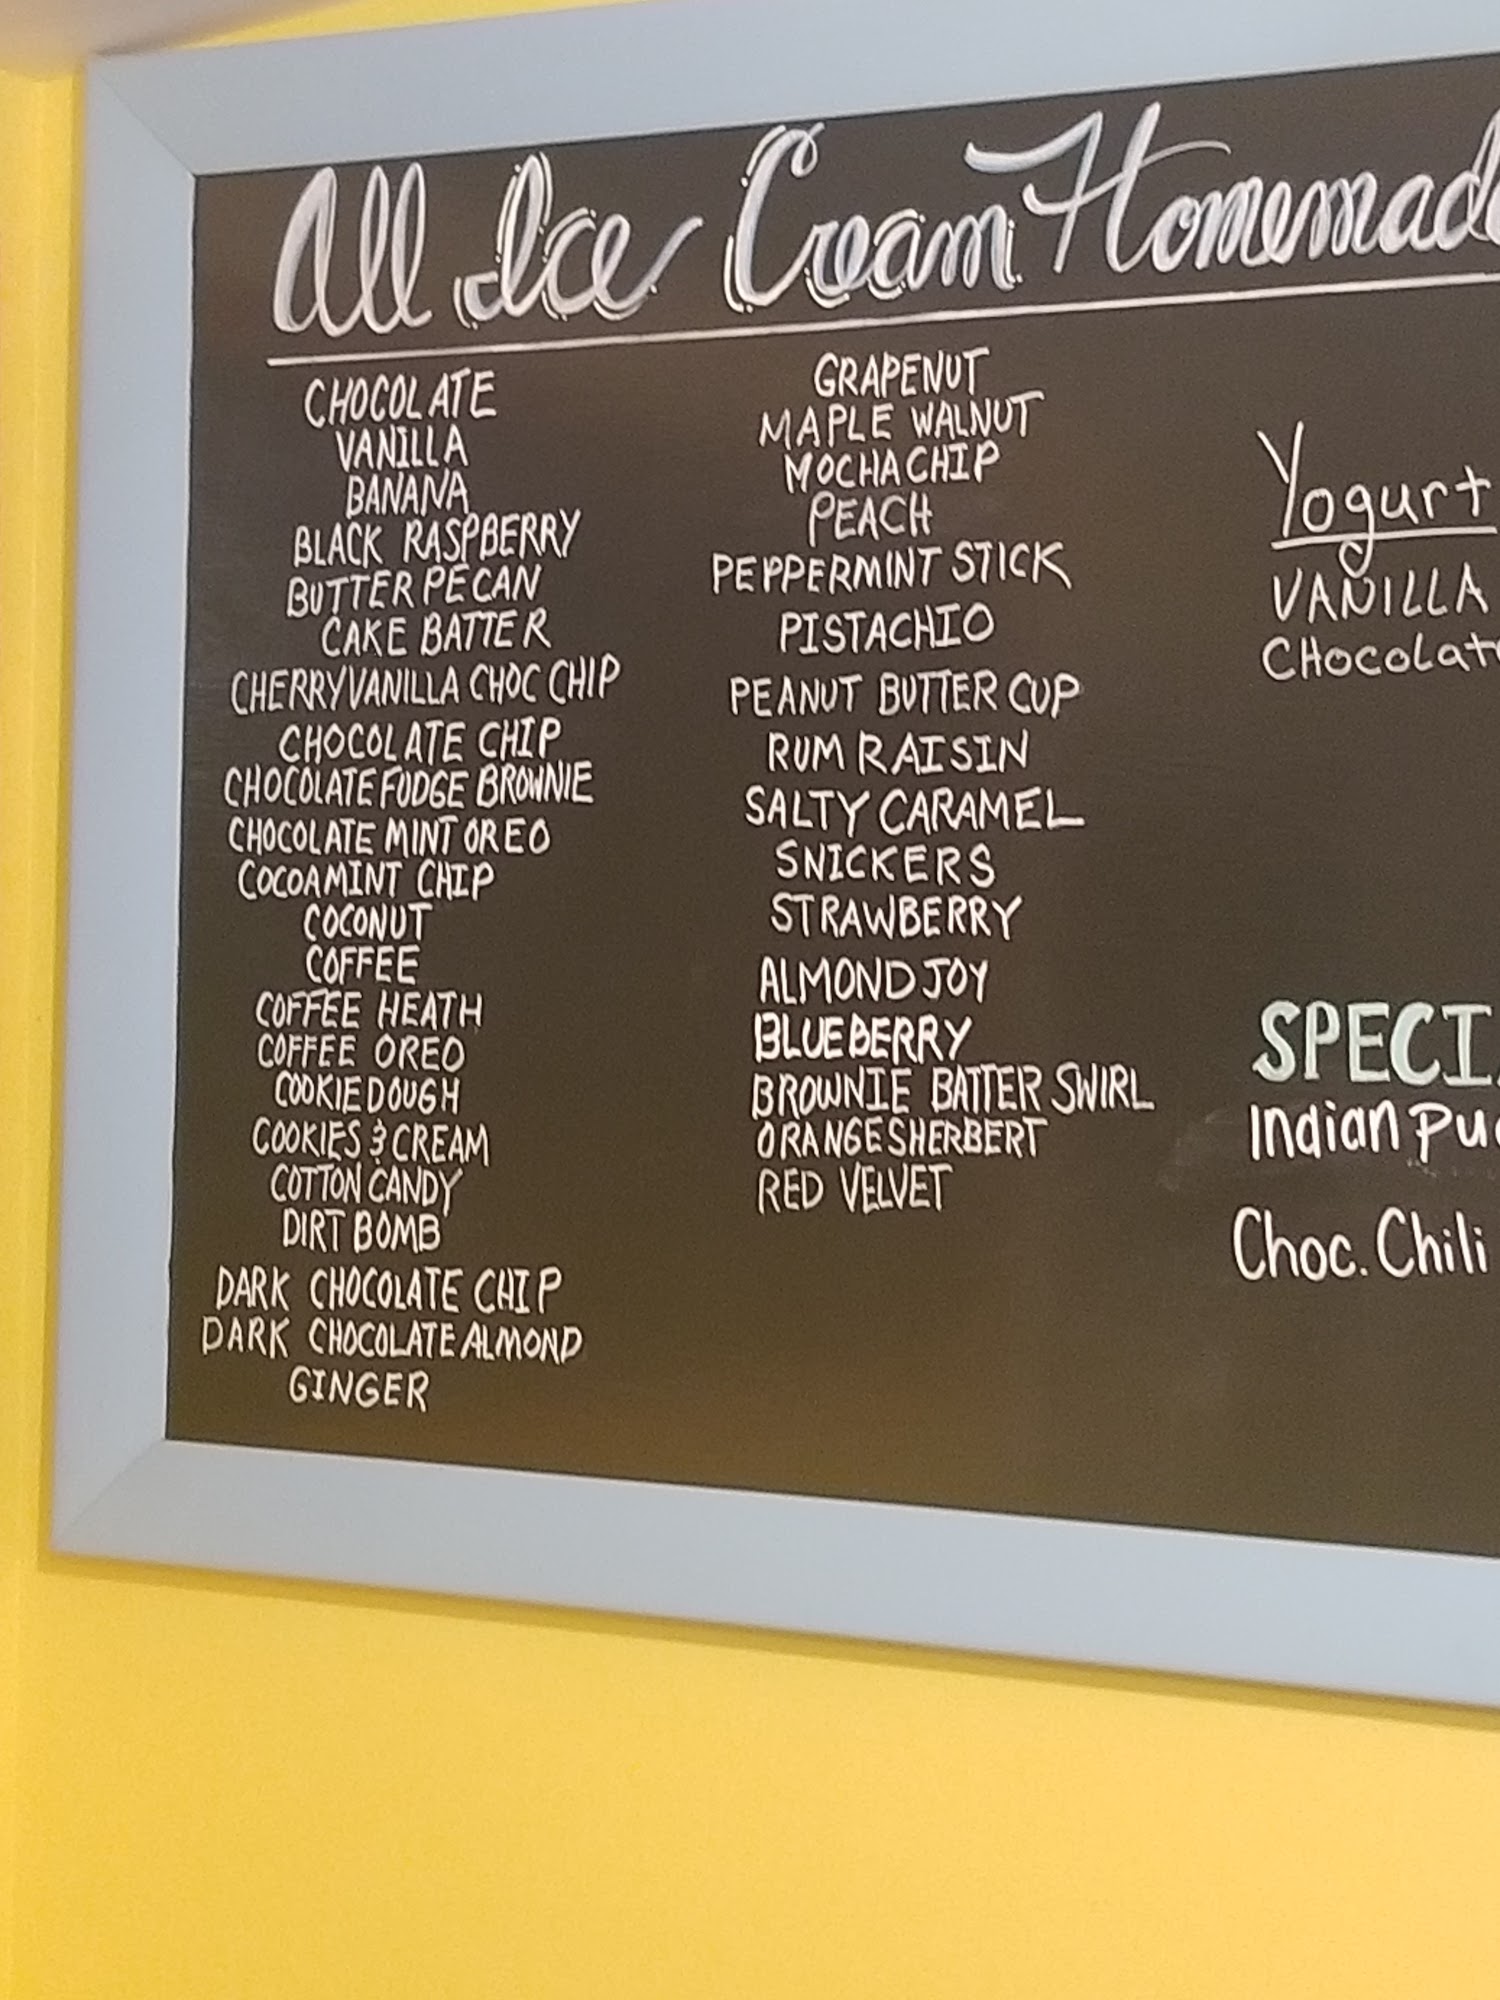 All Ice Cream Homemade
CHOCOLATE
VANILLA
BANANA
BLACK RASPBERRY
BUTTER PECAN
CAKE BATTER
CHERRY VANILLA CHOC CHIP
CHOCOLATE CHIP
CHOCOLATE FUDGE BROWNIE
CHOCOLATE MINT OREO
COCOAMINT CHIP
COCONUT
COFFEE
COFFEE HEATH
COFFEE OREO
COOKIE DOUGH
COOKIES & CREAM
COTTON CANDY
DIRT BOMB
DARK CHOCOLATE CHIP
DARK CHOCOLATE ALMOND
GINGER
GRAPENUT
MAPLE WALNUT
MOCHA CHIP
PEACH
PEPPERMINT STICK
PISTACHIO
PEANUT BUTTER CUP
RUM RAISIN
SALTY CARAMEL
SNICKERS
STRAWBERRY
ALMOND JOY
BLUEBERRY
BROWNIE BATTER SWIRL
ORANGE SHERBERT
RED VELVET
Yogurt
VANILLA
CHocoLate
SPECI
Indian Pu
Choc. Chili